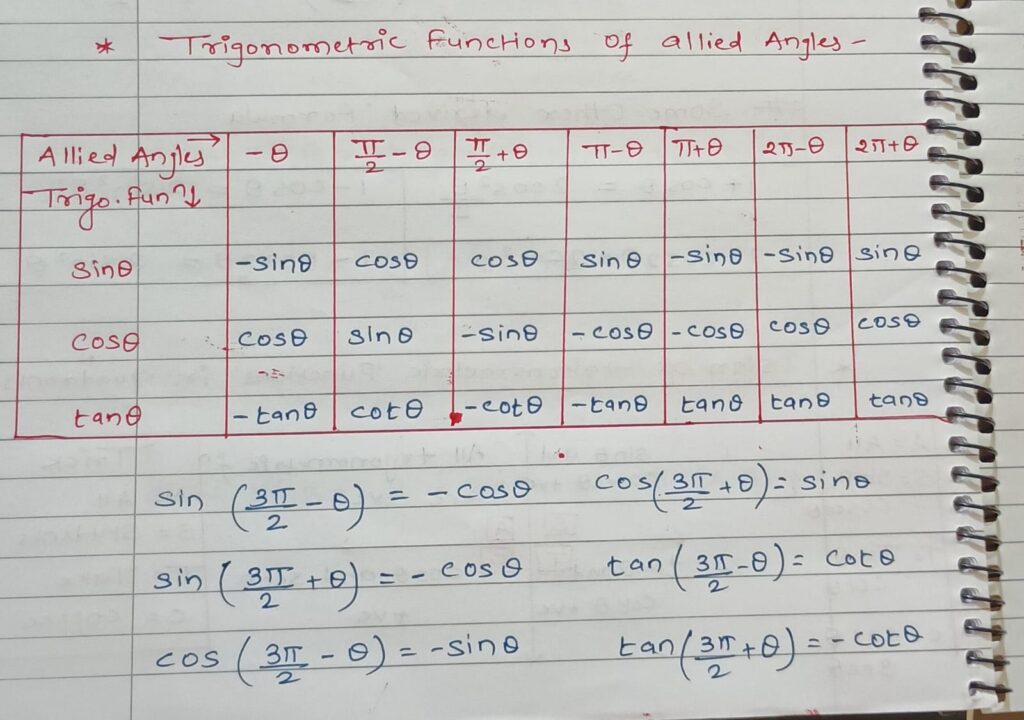 * Trigonometric Functions of allied Angles -
Allied Angles → -θ π/2 - θ π/2 + θ π-θ π+θ 2π-θ 2π+θ
Trigo. funⁿ ↓
sinθ -sinθ cosθ cosθ sinθ -sinθ -sinθ sinθ
cosθ cosθ sinθ -sinθ -cosθ -cosθ cosθ cosθ
tanθ -tanθ cotθ -cotθ -tanθ tanθ tanθ tanθ
sin (3π/2 - θ) = - cosθ cos(3π/2 + θ) = sinθ
sin (3π/2 + θ) = - cosθ tan (3π/2 - θ) = cotθ
cos (3π/2 - θ) = -sinθ tan(3π/2 + θ) = - cotθ